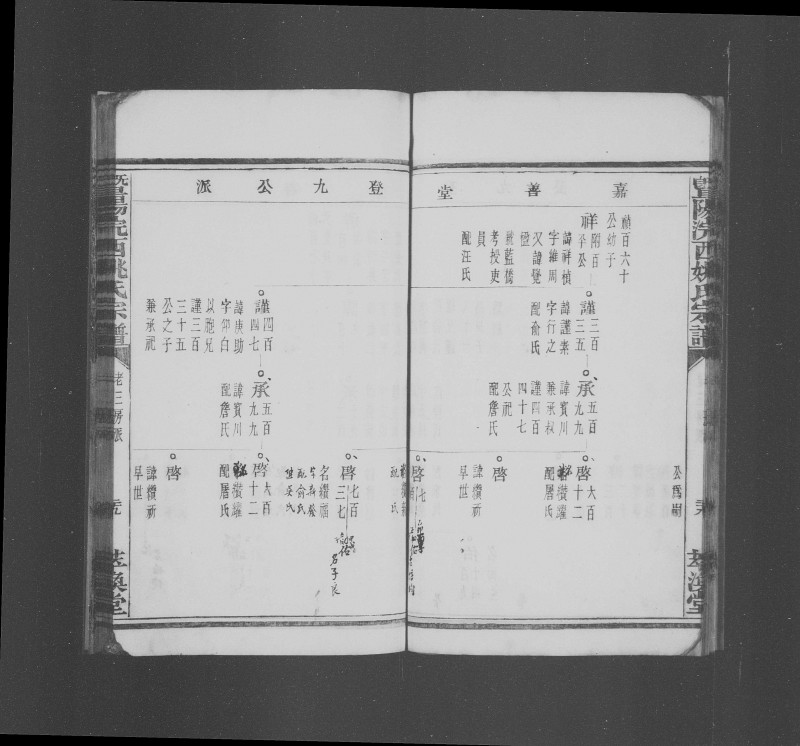 暨陽浣西姚氏宗譜
萃渙堂
嘉善堂
登九公派
禎百六十
公幼子
祥附百
諱祥楨
字維周
又諱覺
號藍橋
考授吏
員
配汪氏
謹三百
三五
諱謹業
字行之
配俞氏
承五百
九九
諱賓川
兼承叔
謹四百
四十七
公祀
配詹氏
公爲嗣
啓六百
十二
諱纘墀
配屠氏
啓
諱纘新
早世
啓七
配氏
謹四百
四七
諱庚助
字仰白
以胞兄
謹三百
三十五
公之子
兼承祀
承五百
九九
諱賓川
配詹氏
啓七百
三七
名纘福
配俞氏
男子良
啓六百
十二
諱纘墀
配屠氏
啓
諱纘新
早世
暨陽浣西姚氏宗譜
老三房派
萃渙堂